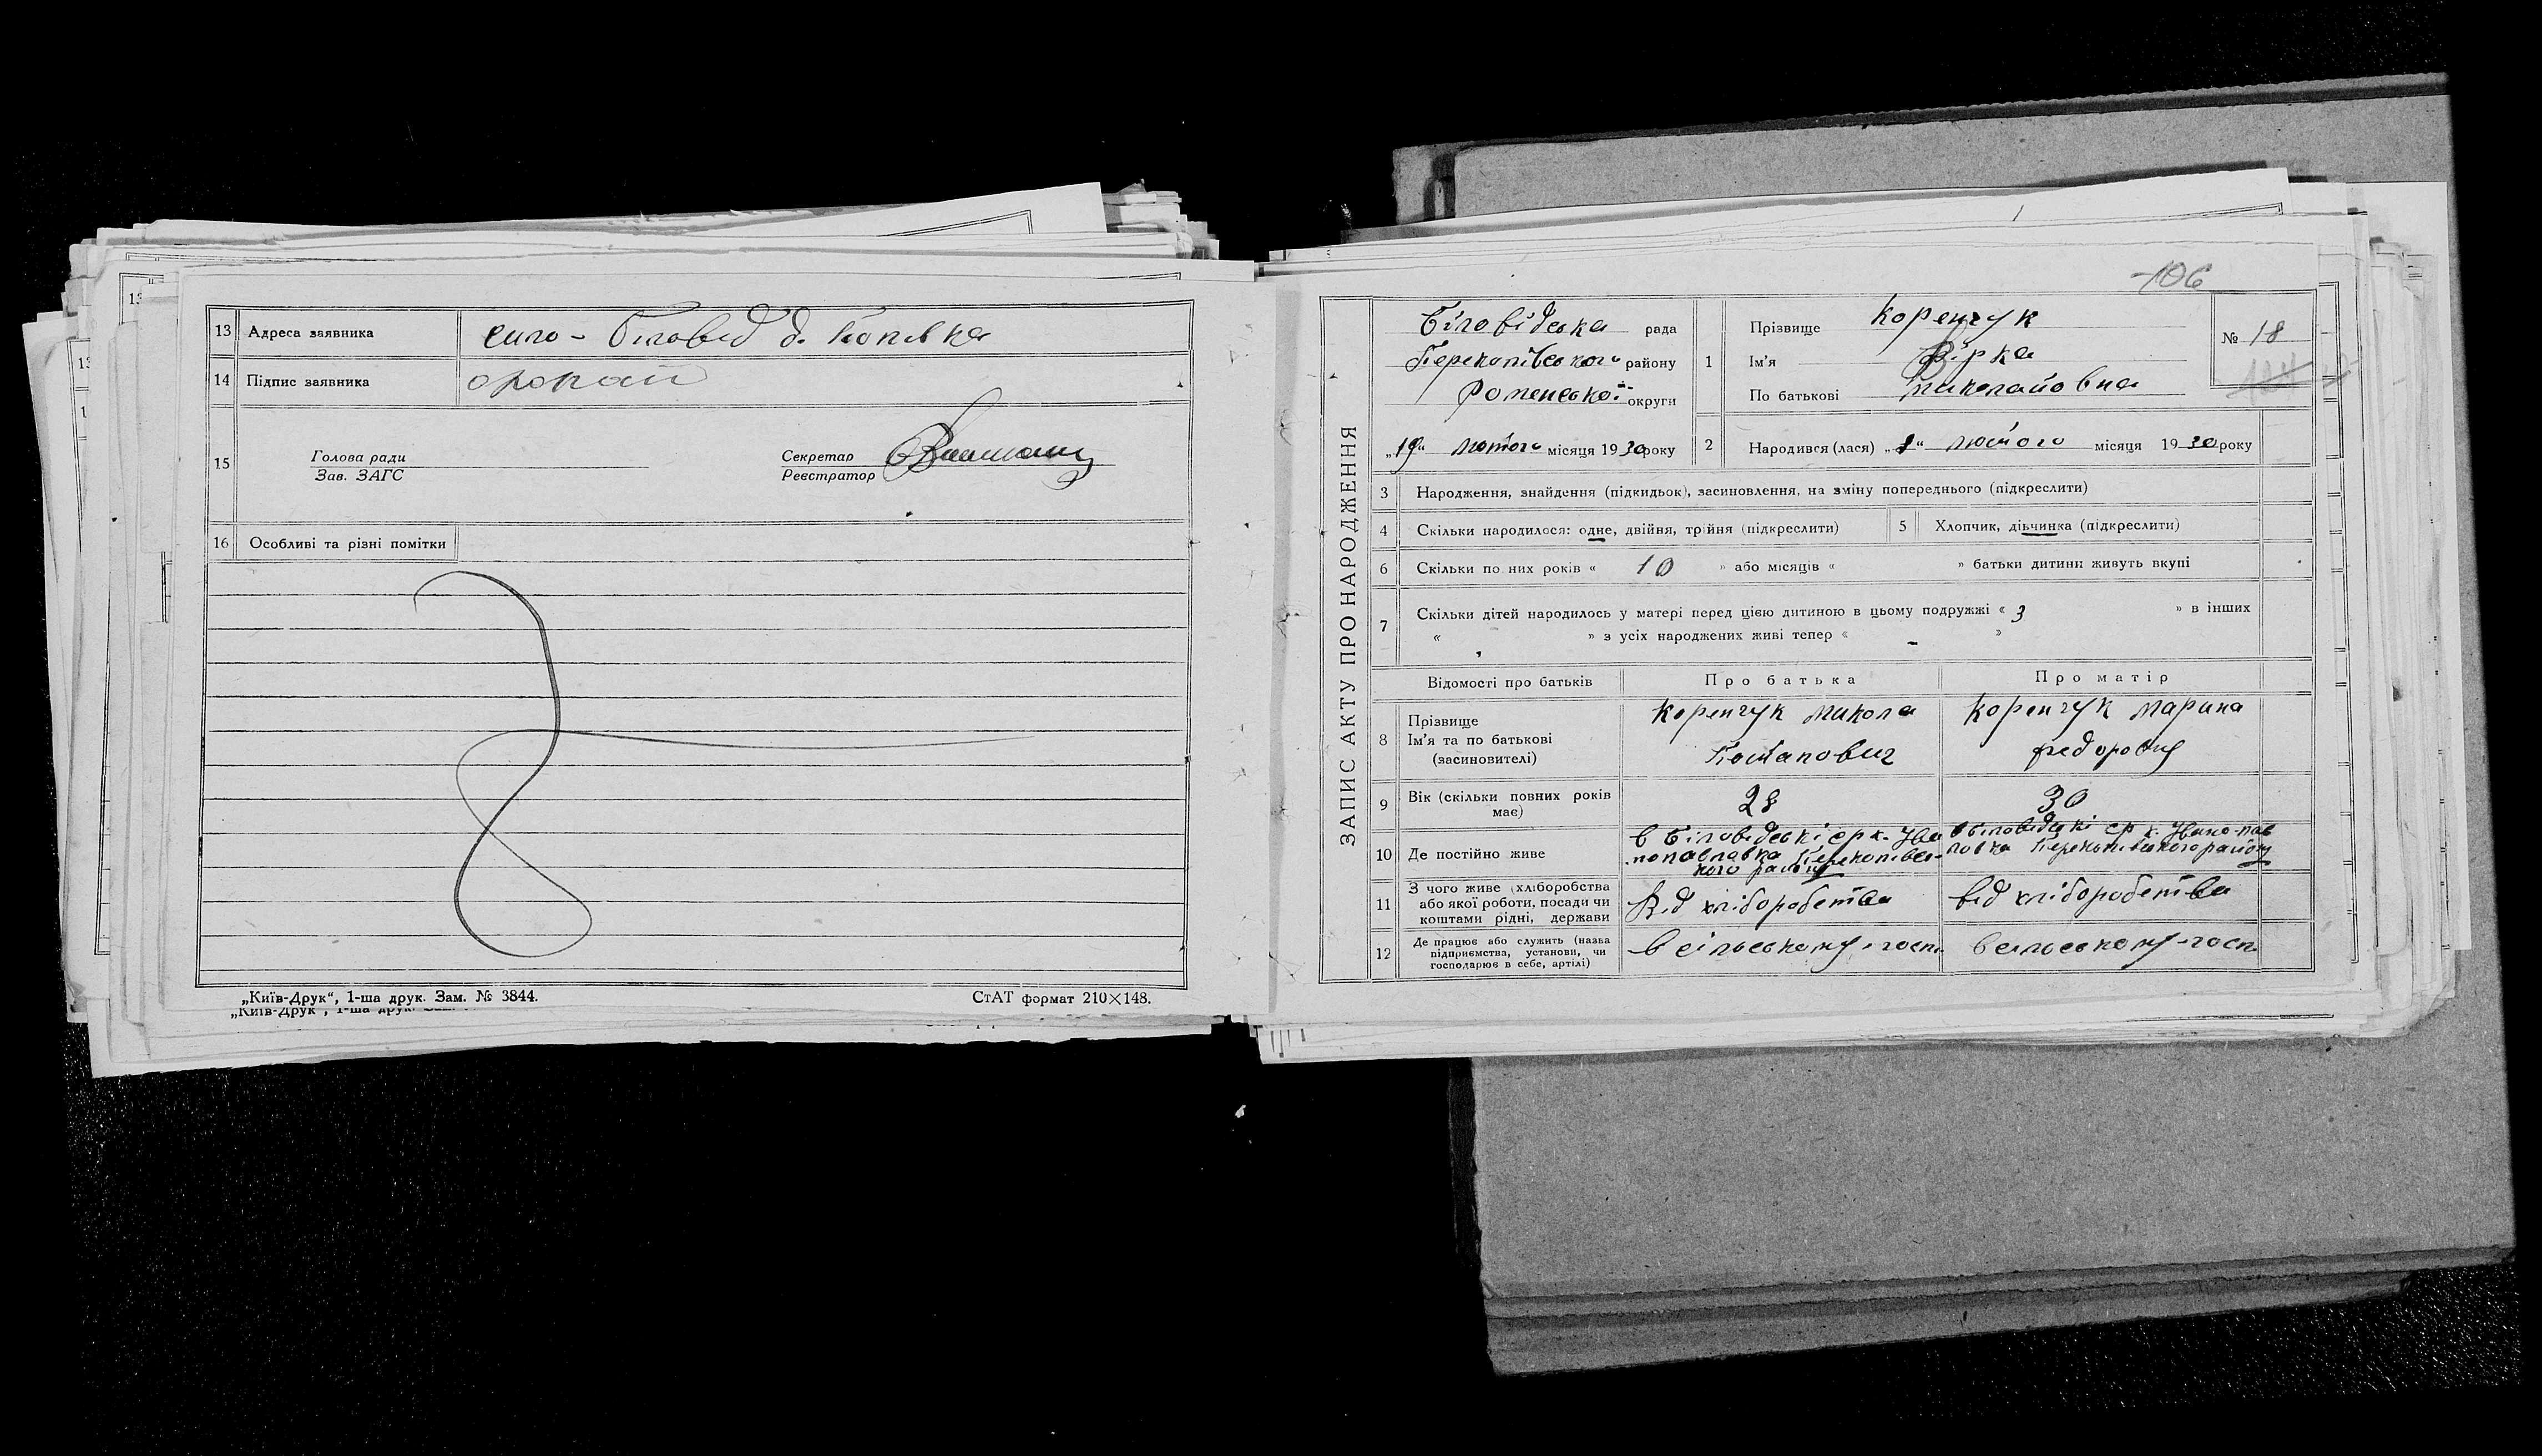 13 Адреса заявника село - Біловід д. Попівка
14 Підпис заявника
15 Голова ради Секретар
Зав. ЗАГС Реєстратор
16 Особливі та різні помітки
„Київ-Друк“, 1-ша друк. Зам. № 3844. СтАТ формат 210×148.
106
ЗАПИС АКТУ ПРО НАРОДЖЕННЯ
Біловідська рада
Перекопівського району
Роменської округи
„19“ лютого місяця 1930 року
1 Прізвище Коренчук
Ім'я Вірка
По батькові Миколайовна
№ 18
2 Народився (лася) „1“ лютого місяця 1930 року
3 Народження, знайдення (підкидьок), засиновлення, на зміну попереднього (підкреслити)
4 Скільки народилося: одне, двійня, трійня (підкреслити) 5 Хлопчик, дівчинка (підкреслити)
6 Скільки повних років « 10 » або місяців « » батьки дитини живуть вкупі
7 Скільки дітей народилось у матері перед цією дитиною в цьому подружжі « 3 » в інших
« » з усіх народжених живі тепер « - »
Відомості про батьків Про батька Про матір
8 Прізвище
Ім'я та по батькові
(засновителі)
Коренчук Микола
Потапович
Коренчук Марина
Федоровна
9 Вік (скільки повних років
має)
28 30
10 Де постійно живе
в Біловідські ср х. Іва
нопавлавка Перекопівсь-
кого району
в Біловідські ср х. Івано-пав
ловка Перекопівського району
11 З чого живе (хліборобства
або якої роботи, посади чи
коштами рідні, держави
Від хліборобства від хліборобства
12 Де працює або служить (назва
підприємства, установи, чи
господарює в себе, артілі)
в сільському-госп. в сільському-госп.